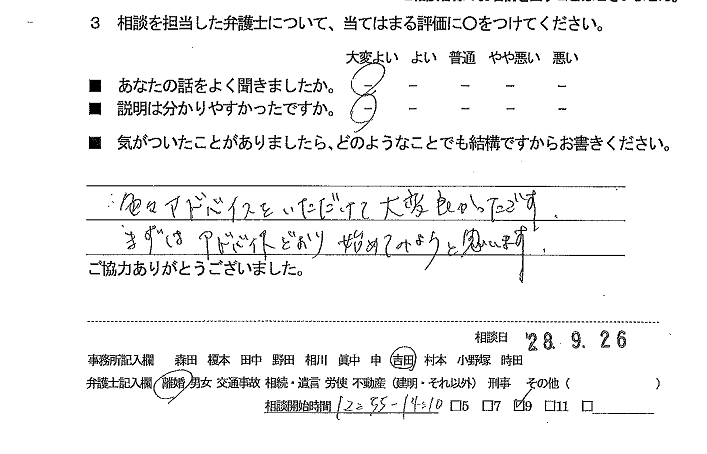 3 相談を担当した弁護士について、当てはまる評価に○をつけてください。
大変よい よい 普通 やや悪い 悪い
■ あなたの話をよく聞きましたか。 － － － － －
■ 説明は分かりやすかったですか。 － － － － －
■ 気がついたことがありましたら、どのようなことでも結構ですからお書きください。
色々アドバイスをいただけて大変良かったです.
まずはアドバイスどおり始めてみようと思います.
ご協力ありがとうございました。
相談日 '28.9.26
事務所記入欄 森田 榎本 田中 野田 相川 眞中 申 吉田 村本 小野塚 時田
弁護士記入欄 離婚 男女 交通事故 相続・遺言 労使 不動産（建明・それ以外） 刑事 その他（ ）
相談開始時間 12:55-14:10 □5 □7 ☑9 □11 □